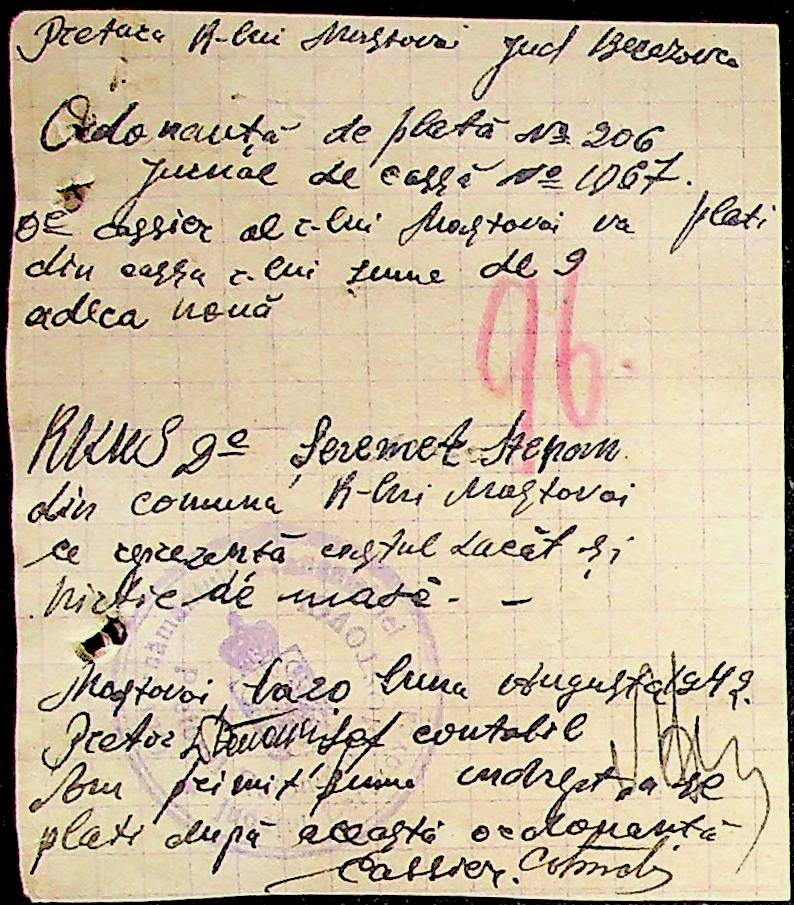 Pretura R-lui Mostovoi Jud Berezovca
Ordonanță de plată № 206
Jurnal de cassă № 1067.
De cassier al r-lui Mostovoi va plati
din cassa r-lui sume de 9
adeca nouă
96.
RKKS De Șeremet Stepan
din comună R-lui Mostovoi
ce reprezentă costul Lacăt și
hirtie de masă - -
Mostovoi la 20 luna August 1942.
Pretor Șef contabil
Am primit sume indrept a se
plati după această ordonantă
Cassier.